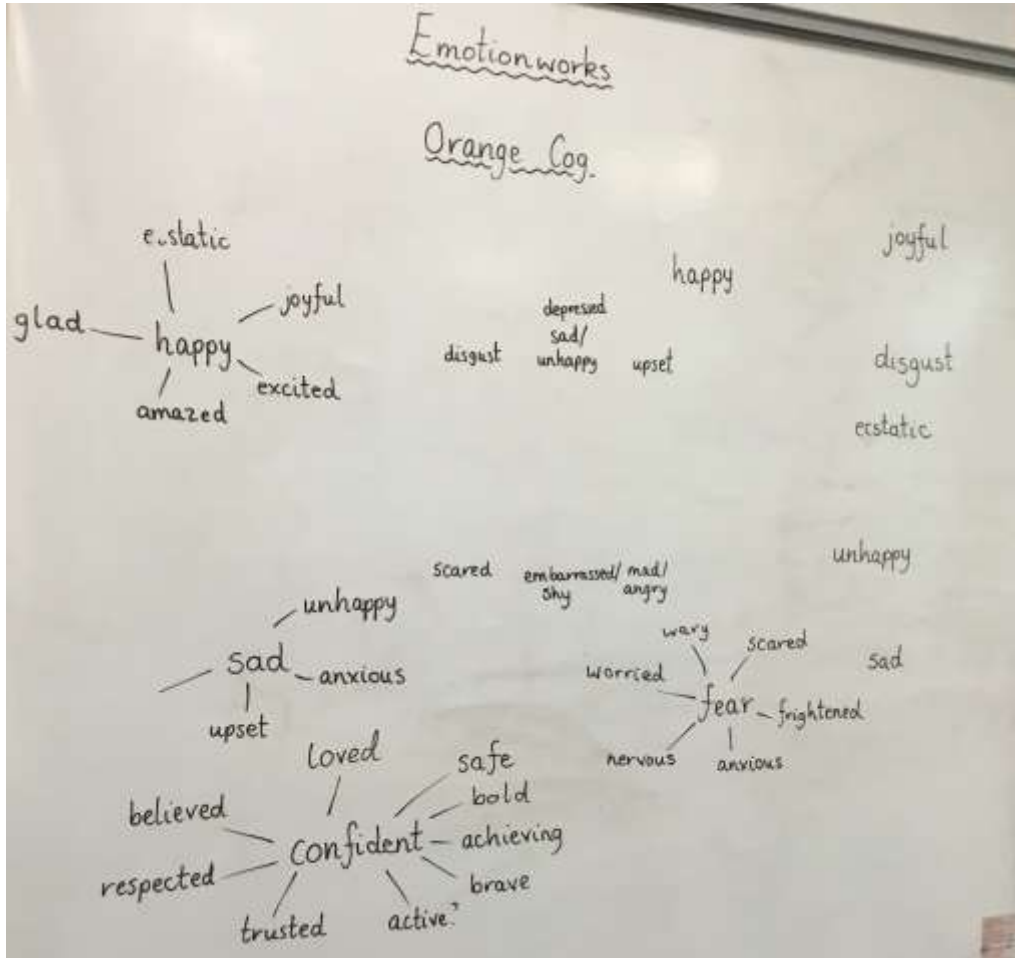 Emotionworks
Orange Cog.
e.static
joyful
glad
happy
excited
amazed
happy
depressed
sad/
disgust unhappy upset
joyful
disgust
ecstatic
unhappy
sad
scared embarrassed/ mad/
shy angry
unhappy
sad
anxious
upset
wary
scared
worried
fear
frightened
nervous
anxious
loved
safe
bold
believed
confident
achieving
respected
brave
trusted
active?